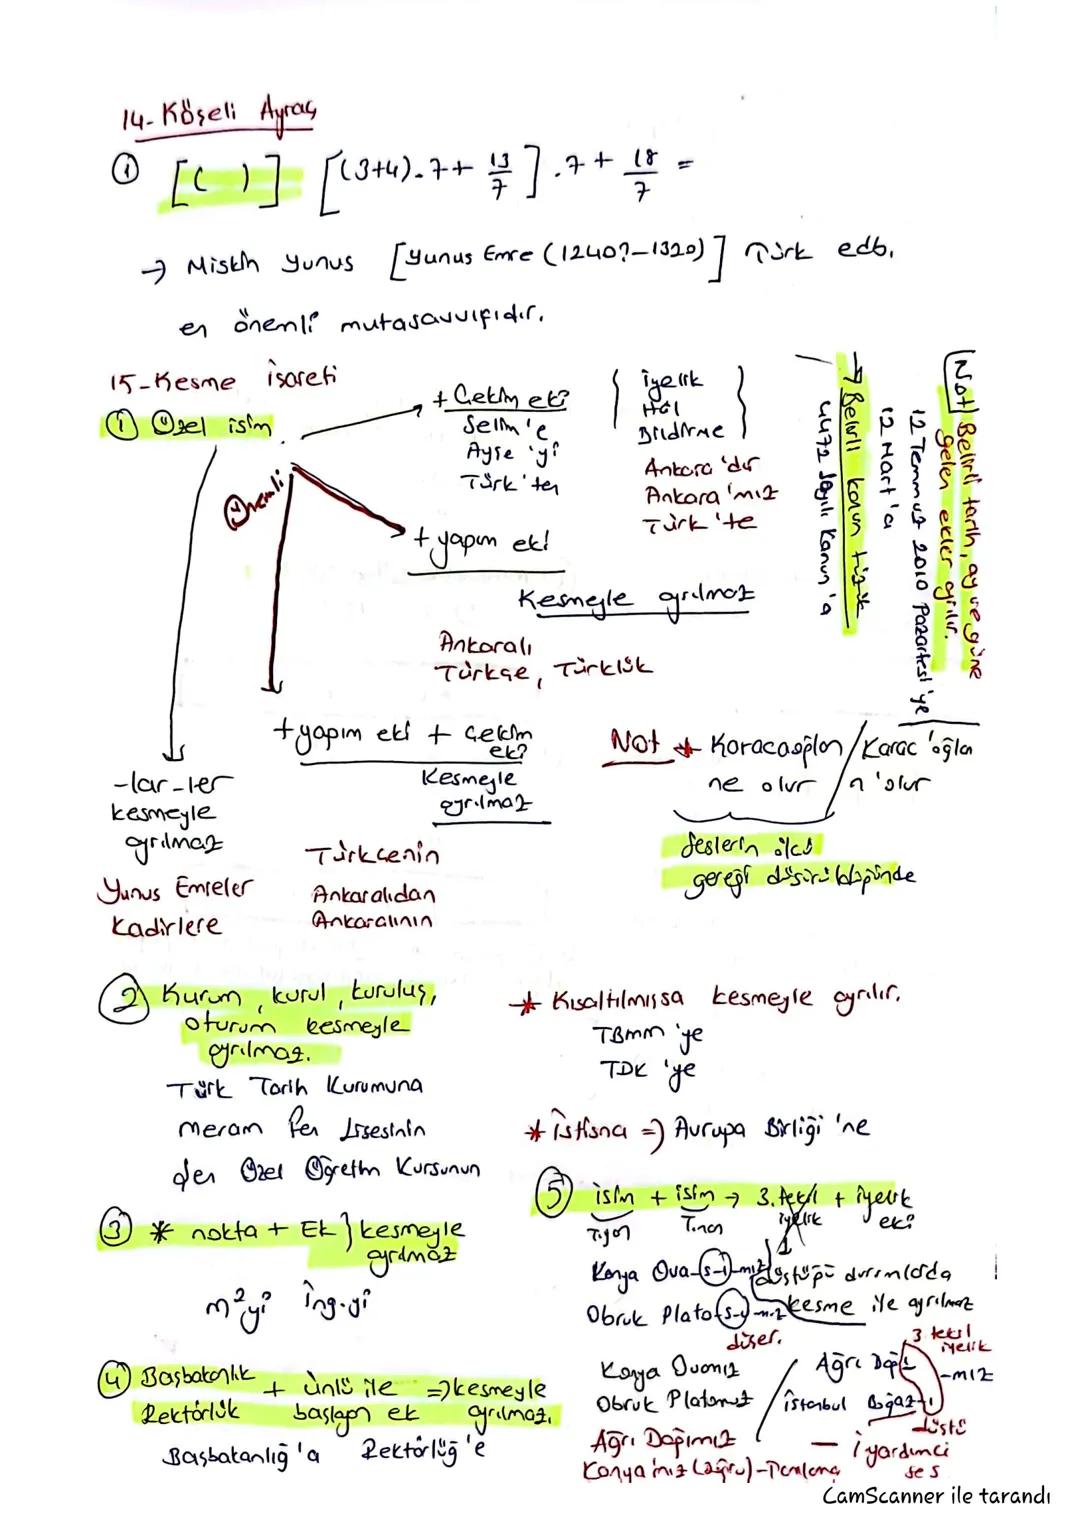 14- Köşeli Ayraç
① [( )] [(3+4).7+ 13/7].7 + 18/7 =
→ Miskin Yunus [Yunus Emre (1240?-1320)] Türk edb.
en önemli mutasavvıfıdır.
15-Kesme işareti
① Özel isim
Önemli
+ Çekim eki
Selim'e
Ayşe'yi
Türk'ten
{ İyelik
Hâl
Bildirme }
Ankara'dır
Ankara'mız
Türk'te
+ yapım eki
Kesmeyle ayrılmaz
Ankaralı
Türkçe, Türklük
+yapım eki + çekim eki
Kesmeyle ayrılmaz
Türkçenin
Ankaralıdan
Ankaralının
-lar -ler
kesmeyle
ayrılmaz
Yunus Emreler
Kadirlere
Not Belirli tarih, ay ve güne
gelen ekler ayrılır.
12 Temmuz 2010 Pazartesi'ye
12 Mart'a
→ Belirli kanun tüzük
4472 Sayılı Kanun'a
Not * Karacaoğlan / Karac'oğlan
ne olur / n'olur
Seslerin ölçü
gereği düşürüldüğünde
② Kurum, kurul, kuruluş,
oturum kesmeyle
ayrılmaz.
Türk Tarih Kurumuna
Meram Fen Lisesinin
Özel Öğretim Kursunun
* Kısaltılmışsa kesmeyle ayrılır.
TBMM'ye
TDK'ye
* İstisna => Avrupa Birliği'ne
③ * nokta + Ek } kesmeyle
ayrılmaz
m²yi İng.yi
④ Başbakanlık
Rektörlük + ünlü ile => kesmeyle
başlayan ek ayrılmaz.
Başbakanlığ'a Rektörlüğ'e
⑤ isim + isim → 3. tekil + iyelik
iyelik eki
Konya Ova-(s-ı)-mız
düştüğü durumlarda
Obruk Plato-(s-u)-muz kesme ile ayrılmaz
düşer.
Konya Ovamız
Obruk Platomuz
Ağrı Dağımız
Ağrı Dağı
3. tekil
iyelik
-mız
İstanbul Boğaz-ı
düştü
– ı yardımcı
ses
CamScanner ile tarandı